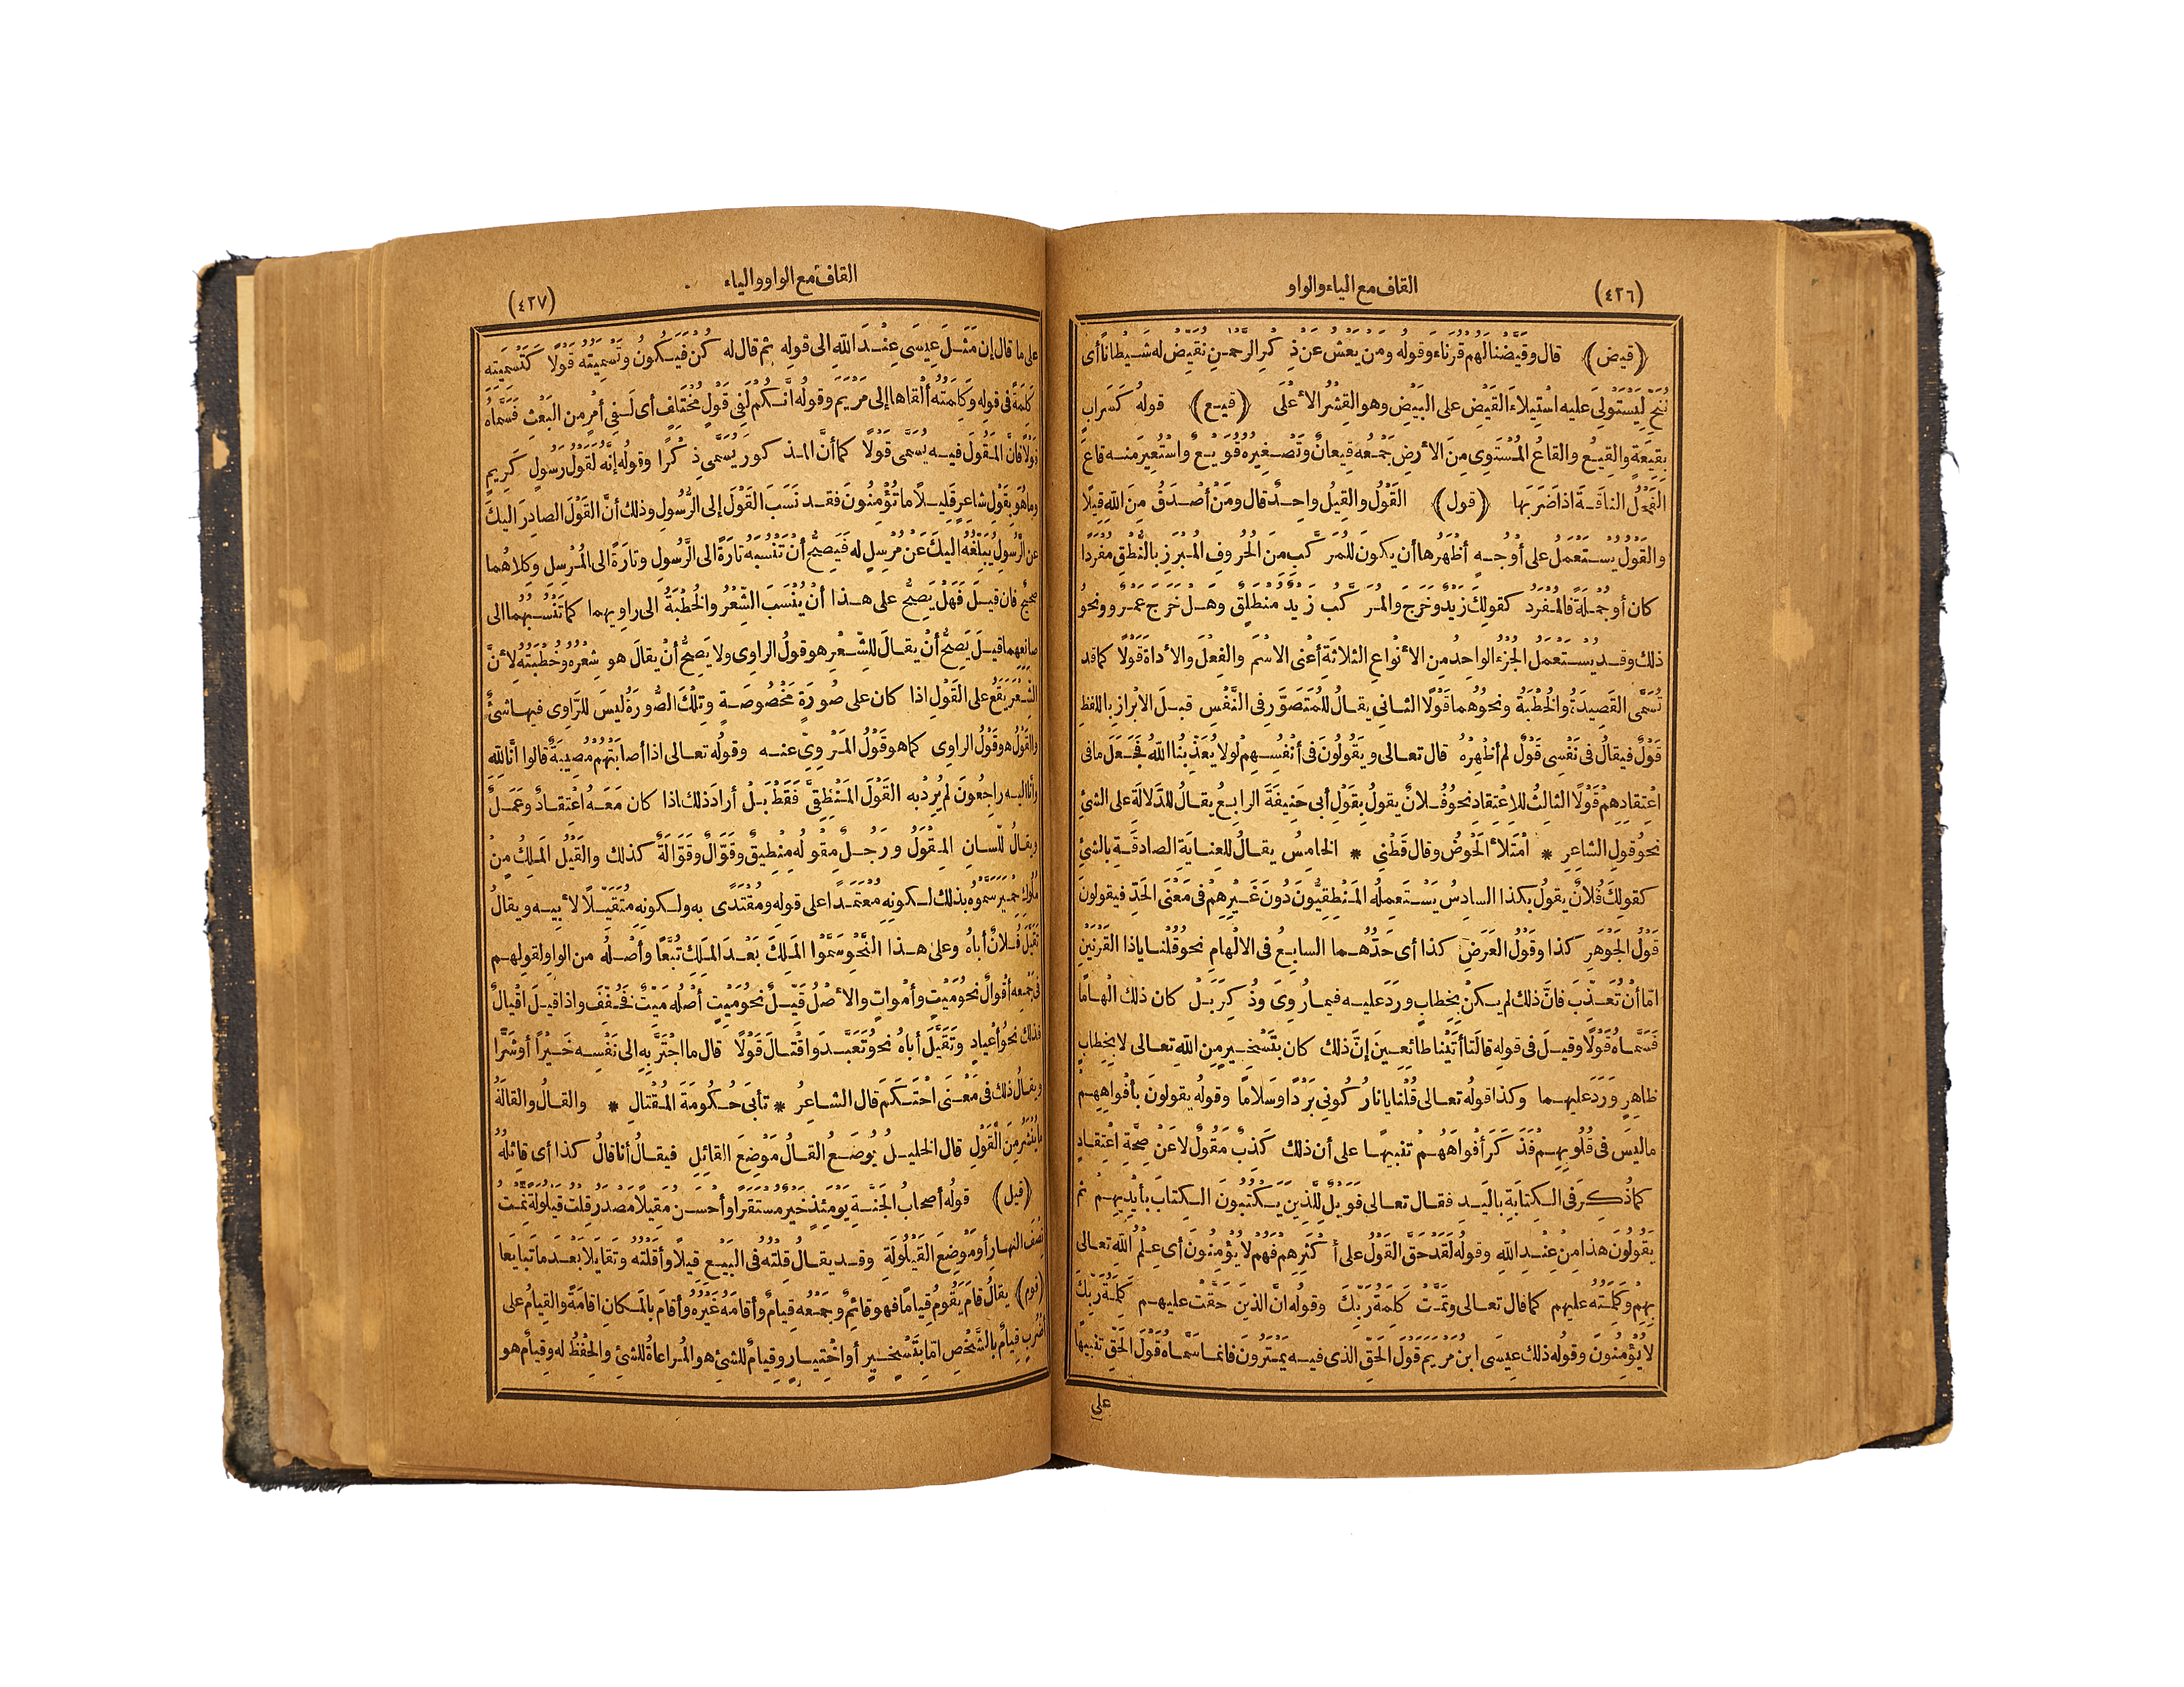 (٤٢٦)
القاف مع الياء والواو
(قيض) قال وقَيَّضْنا لَهُم قُرَناءَ وقولُه ومَن يَعْشُ عَن ذِكْرِ الرَّحْمنِ نُقَيِّضْ له شَيْطانًا أى
نُتِحْ لِيَسْتَوْلِىَ عليه اسْتِيلاءَ القَيْضِ على البَيْضِ وهو القِشْرُ الأعْلَى (قيع) قوله كَسَرابٍ
بِقِيعَةٍ والقِيعُ والقاعُ المُسْتَوِى مِنَ الأرضِ جَمْعُه قِيعانٌ وتَصْغِيرُهُ قُوَيْعٌ واسْتُعِيرَ منه قاعَ
الفَحْلُ الناقَةَ اذا ضَرَبَها (قول) القَوْلُ والقِيلُ واحِدٌ قال ومَنْ أصْدَقُ مِنَ اللّهِ قِيلًا
والقَوْلُ يُسْتَعْمَلُ على أوْجُهٍ أظْهَرُها أن يكونَ للمُرَكَّبِ مِنَ الحُرُوفِ المُبْرَزِ بالنُّطْقِ مُفْرَدًا
كان أو جُمْلَةً فالمُفْرَدُ كقولِكَ زَيْدٌ وخَرَجَ والمُرَكَّبُ زَيْدٌ مُنْطَلِقٌ وهَلْ خَرَجَ عَمْرٌو ونحوُ
ذلك وقد يُسْتَعْمَلُ الجُزْءُ الواحِدُ مِن الأنْواعِ الثلاثَةِ أعْنِى الاسْمَ والفِعْلَ والأداةَ قَوْلًا كما قد
تُسَمَّى القَصِيدَةُ والخُطْبَةُ ونحوُهُما قَوْلًا الثانِى يقالُ للمُتَصَوَّرِ فى النَّفْسِ قبلَ الابْرازِ باللفظِ
قَوْلٌ فيقالُ فى نَفْسِى قَوْلٌ لم أُظْهِرْهُ قال تعالى ويَقُولُونَ فى أنْفُسِهِمْ لولا يُعَذِّبُنا اللّهُ فَجَعَلَ ما فى
اعْتِقادِهِمْ قَوْلًا الثالِثُ للاعْتِقادِ نحوُ فُلانٌ يقولُ بقَوْلِ أبى حَنِيفَةَ الرابعُ يقالُ للدَّلالَةِ على الشئِ
نحوُ قولِ الشاعِرِ * امْتَلأَ الحَوْضُ وقال قَطْنِى * الخامِسُ يقالُ للعِنايَةِ الصادِقَةِ بالشئِ
كقولِكَ فُلانٌ يقولُ بكذا السادِسُ يَسْتَعْمِلُه المَنْطِقِيُّونَ دُونَ غَيْرِهِمْ فى مَعْنَى الحَدِّ فيقولونَ
قَوْلُ الجَوْهَرِ كذا وقَوْلُ العَرَضِ كذا أى حَدُّهُما السابِعُ فى الالْهامِ نحوُ قُلْنا ياذا القَرْنَيْنِ
امّا أنْ تُعَذِّبَ فانَّ ذلك لم يكنْ بخِطابٍ ورَدَ عليه فيما رُوِىَ وذُكِرَ بَلْ كان ذلك الْهامًا
فَسَمّاهُ قَوْلًا وقيلَ فى قولِهِ قالَتا أتَيْنا طائِعِينَ إنَّ ذلك كان بتَسْخِيرٍ مِنَ اللّهِ تعالى لا بخِطابٍ
ظاهِرٍ وَرَدَ عليهما وكذا قولُه تعالى قُلْنا يا نارُ كُونِى بَرْدًا وسَلامًا وقولُه يقولونَ بأفْواهِهِمْ
ما ليسَ فى قُلُوبِهِمْ فَذَكَرَ أفْواهَهُمْ تنبيهًا على أن ذلك كَذِبٌ مَقُولٌ لا عَنْ صِحَّةِ اعْتِقادٍ
كما ذُكِرَ فى الكِتابَةِ باليَدِ فقال تعالى فوَيْلٌ لِلَّذِينَ يَكْتُبُونَ الكِتابَ بأيْدِيهِمْ ثم
يَقُولُونَ هذا مِنْ عِنْدِ اللّهِ وقولُه لَقَدْ حَقَّ القَوْلُ على أكْثَرِهِمْ فَهُمْ لا يُؤْمِنُونَ أى عِلْمُ اللّهِ تعالى
بِهِمْ وكَلِمَتُه عليهم كما قال تعالى وتَمَّتْ كَلِمَةُ رَبِّكَ وقولُه انَّ الذينَ حَقَّتْ عليهم كَلِمَةُ رَبِّكَ
لا يُؤْمِنُونَ وقوله ذلك عِيسَى ابن مَرْيَمَ قَوْلَ الحَقِّ الذى فيه يَمْتَرُونَ فانما سَمّاهُ قَوْلَ الحَقِّ تنبيهًا
على
القاف مع الواو والياء
(٤٢٧)
على ما قال إن مَثَلَ عِيسَى عِنْدَ اللّهِ الى قولِهِ ثم قال له كُنْ فَيَكُونُ وتَسْمِيَتُه قَوْلًا كَتَسْمِيَتِه
كَلِمَةً فى قوله وكَلِمَتُه ألْقاها إلى مَرْيَمَ وقولُه انَّكُمْ لَفِى قَوْلٍ مُخْتَلِفٍ أى لَفِى أمْرٍ من البَعْثِ فَسَمّاهُ
قَوْلًا فانَّ المَقُولَ فيه يُسَمَّى قَوْلًا كما أنَّ المذكورَ يُسَمَّى ذِكْرًا وقولُه إنَّهُ لَقَوْلُ رَسُولٍ كَرِيمٍ
وما هُوَ بِقَوْلِ شاعِرٍ قَلِيلًا ما تُؤْمِنُونَ فقد نَسَبَ القَوْلَ إلى الرَّسُولِ وذلك أنَّ القَوْلَ الصادِرَ اليكَ
عن الرَّسُولِ يُبَلِّغُه اليكَ عَنْ مُرْسِلٍ له فَيَصِحُّ أنْ تَنْسُبَهُ تارَةً الى الرَّسُولِ وتارَةً الى المُرْسِلِ وكِلاهُما
صحيحٌ فان قيلَ فَهَلْ يَصِحُّ على هذا أنْ يُنْسَبَ الشِّعْرُ والخُطْبَةُ الى راوِيهما كما تَنْسُبُهُما الى
صانِعِهِما قيلَ يَصِحُّ أنْ يقالَ للشِّعْرِ هو قولُ الراوِى ولا يَصِحُّ أنْ يقالَ هو شِعْرُهُ وخُطْبَتُه لأنَّ
الشِّعْرَ يَقَعُ على القَوْلِ اذا كان على صُورَةٍ مَخْصُوصَةٍ وتِلْكَ الصُّورَةُ ليسَ للرّاوِى فيها شئٌ
والقَوْلُ هو قَوْلُ الراوِى كما هو قَوْلُ المَرْوِىِّ عنه وقولُه تعالى اذا أصابَتْهُمْ مُصِيبَةٌ قالوا انَّا للّهِ
وانّا اليه راجِعُونَ لم يُرِدْ به القَوْلَ المَنْطِقِىَّ فَقَطْ بَلْ أرادَ ذلك اذا كان مَعَهُ اعْتِقادٌ وعَمَلٌ
ويقالُ للّسانِ المِقْوَلُ ورَجُلٌ مِقْوَلٌ مِنْطِيقٌ وقَوّالٌ وقَوّالَةٌ كذلك والقَيْلُ المَلِكُ مِنْ
مُلُوكِ حِمْيَرَ سَمَّوْهُ بذلك لكونِه مُعْتَمَدًا على قولِه ومُقْتَدًى به ولكونِه مُتَقَيِّلًا لأبِيه ويقالُ
تَقَيَّلَ فُلانٌ أباهُ وعلى هذا النَّحْوِ سَمَّوُا المَلِكَ بَعْدَ المَلِكِ تُبَّعًا وأصْلُه من الواوِ لقولِهم
فى جَمْعِه أقْوالٌ نحوُ مَيْتٍ وأمْواتٍ والأصْلُ قَيِّلٌ نحوُ مَيْتٍ أصْلُه مَيِّتٌ فَخُفِّفَ واذا قيلَ اقْيالٌ
فذلك نحوُ أعْيادٍ وتَقَيَّلَ أباهُ نحوُ تَعَبَّدَ واقْتالَ قَوْلًا قال ما اجْتَرَّ بِه الى نَفْسِه خَيْرًا أو شَرًّا
ويقالُ ذلك فى مَعْنَى احْتَكَمَ قال الشاعِرُ * تأبَى حُكُومَةَ المُقْتالِ * والقالُ والقالَةُ
ما يُنْشَرُ مِنَ القَوْلِ قال الخليلُ يُوضَعُ القالُ مَوْضِعَ القائِلِ فيقالُ أنا قالُ كذا أى قائِلُهُ
(قيل) قولُه أصحابُ الجَنَّةِ يَوْمَئِذٍ خَيْرٌ مُسْتَقَرًّا وأحْسَنُ مَقِيلًا مَصْدَرُ قِلْتُ قَيْلُولَةً نِمْتُ
نِصْفَ النهارِ أو مَوْضِعَ القَيْلُولَةِ وقد يقالُ قِلْتُه فى البَيْعِ قِيلًا وأقَلْتُه وتَقايَلا بَعْدَ ما تَبايَعا
(قوم) يقالُ قامَ يَقُومُ قِيامًا فهو قائِمٌ وجَمْعُه قِيامٌ وأقامَهُ غَيْرُهُ وأقامَ بالمَكانِ اقامَةً والقِيامُ على
أضْرُبٍ قِيامٌ بالشَّخْصِ امّا بتَسْخِيرٍ أو اخْتِيارٍ وقِيامٌ للشئِ هو المُراعاةُ للشئِ والحِفْظُ له وقِيامٌ هو